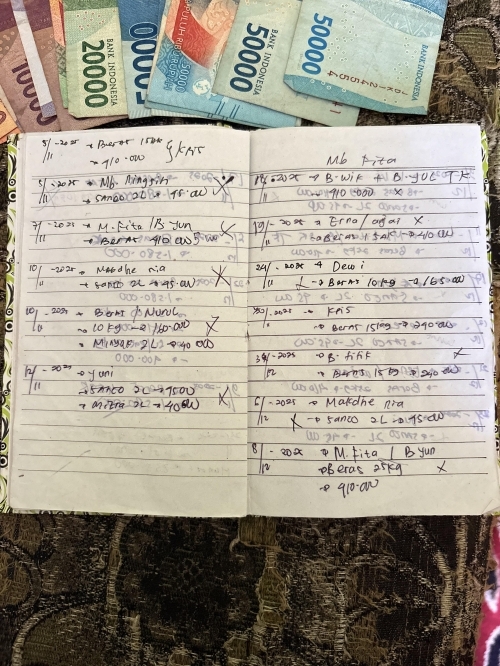 10000
20000
BANK INDONESIA
50000
BANK INDONESIA
50000
BANK INDONESIA
5/11 -2025 → Beras
→ 410.000 } KRIS
5/11 -2025 → Mb.
→ Sanco 2L → 45.000 X
7/11 -2025 → M. Fita / B Yun
→ Beras 410.000
10/11 -2025 → Makdhe ria
→ Sanco 2L → 45.000 X
10/11 -2025 → Beras B Nurul
→ 10 kg → 160.000
→ Minyak 2L → 40.000
12/11 -2025 → yuni
→ Sanco 2L → 45.000
→ Mitra 2L → 40.000 X
Mb Fita
-2025 → B. Wik + B. Yul T K
11 → 410.000 X
19/11 -2025 → Erna / X
→ Beras 15kg → 240.000
24/11 -2025 → Dewi
X → Beras 10 kg → 165.000
-2025 → Kris
11 Beras 15kg → 240.000
-2025 → B. titik X
12 → Beras 15 kg → 240.000
6/12 -2025 → Makdhe ria
X → Sanco 2L → 45.000
8/12 -2025 → M. Fita / B Yun
→ Beras 25kg X
→ 410.000